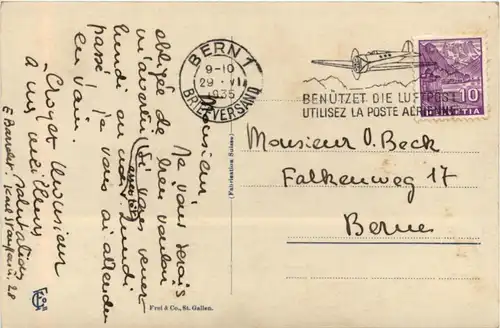 BERN 1
9-10
29. VI.
1935
BRIEFVERSAND
BENÜTZET DIE LUFTPOST
UTILISEZ LA POSTE AÉRIENNE
10
HELVETIA
Monsieur O. Beck
Falkenweg 17
Berne
(Fabrication Suisse)
Frei & Co., St. Gallen.
Monsieur,
Je vous serais
obligée de bien vouloir
m'avertir si vous venez
aussitôt
lundi ou midi lundi
passé je vous ai attendu
en vain.
Croyez Monsieur
à mes meilleurs
salutations